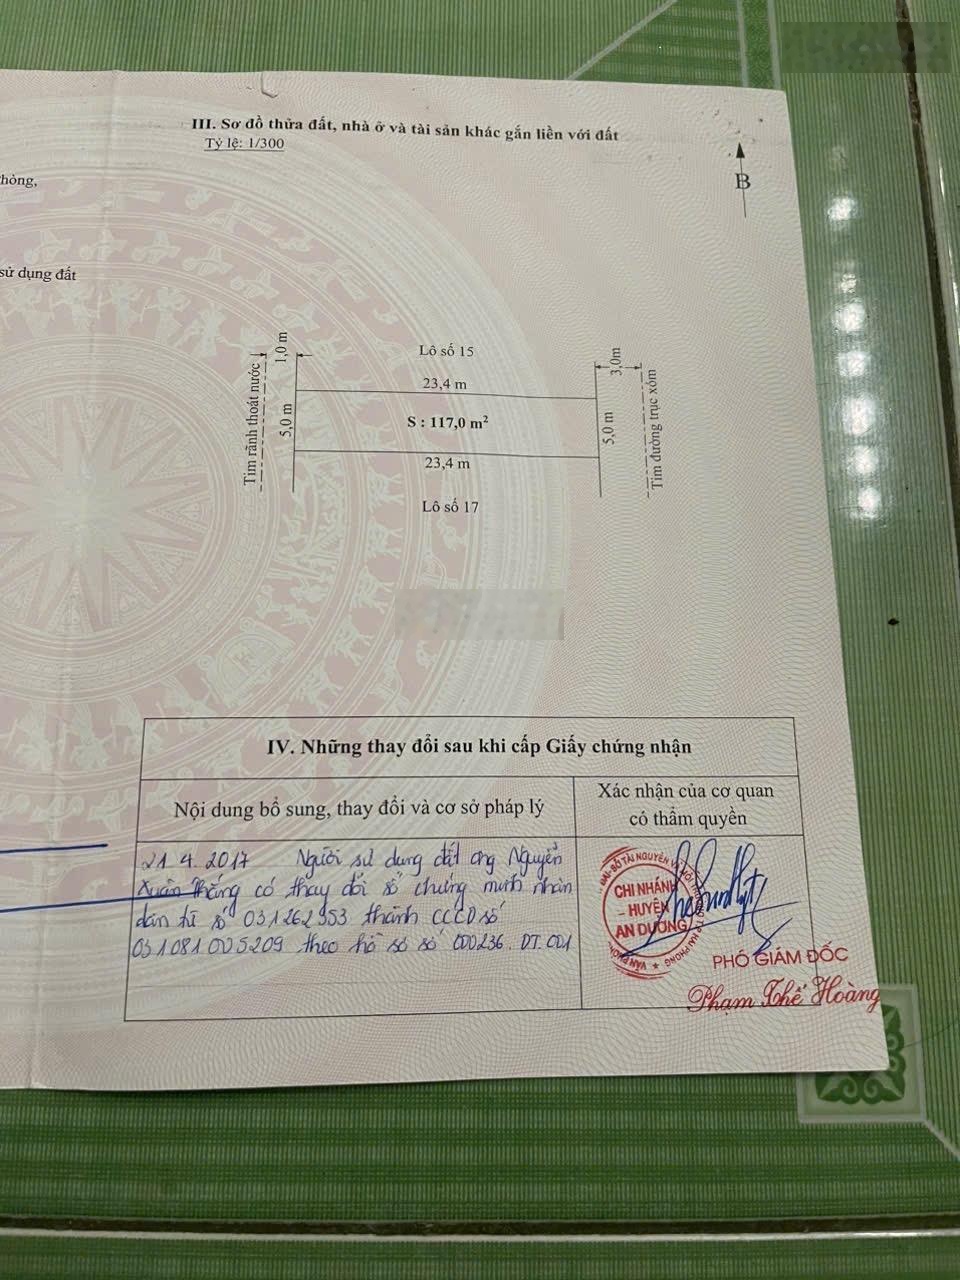 III. Sơ đồ thửa đất, nhà ở và tài sản khác gắn liền với đất
Tỷ lệ: 1/300
B
hòng,
sử dụng đất
Tim rãnh thoát nước
1,0 m
5,0 m
Lô số 15
23,4 m
S : 117,0 m²
23,4 m
Lô số 17
3,0m
5,0 m
Tim đường trục xóm
IV. Những thay đổi sau khi cấp Giấy chứng nhận
Nội dung bổ sung, thay đổi và cơ sở pháp lý
Xác nhận của cơ quan
có thẩm quyền
21.4.2017 Người sử dụng đất ông Nguyễn
Xuân Thắng có thay đổi số chứng minh nhân
dân từ số 031262953 thành CCCD số
031081005209 theo hồ sơ số 000236.DT.001
CHI NHÁNH
HUYỆN
AN DƯƠNG
PHÓ GIÁM ĐỐC
Phạm Thế Hoàng